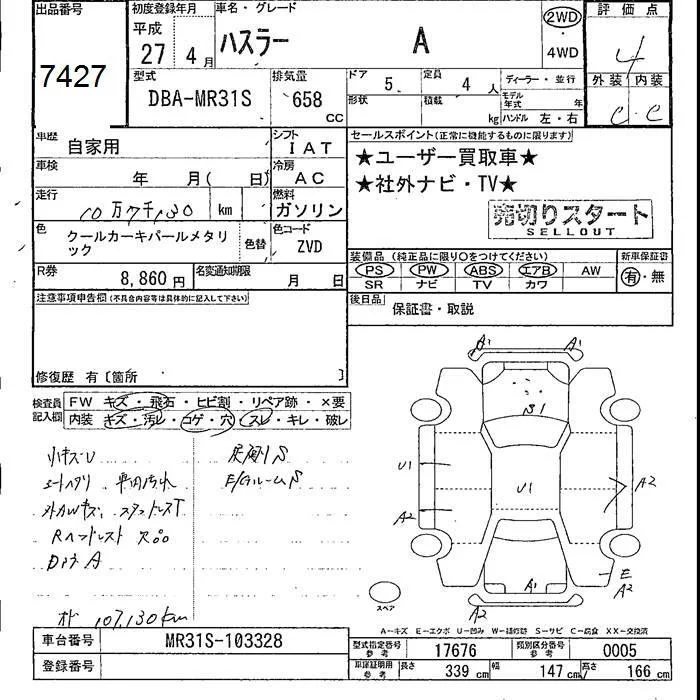 出品番号 初度登録年月 車名・グレード 評価点
平成
27年 4月 ハスラー A 2WD・4WD 4
7427
型式 排気量 ドア 定員 ディーラー・並行 外装 内装
DBA-MR31S 658cc 5 4人 C C
形状 積載 kg モデル年式 年 ハンドル 左・右
車歴 自家用 シフト IAT
車検 年 月( 日) 冷房 AC
走行 10万7千130 km 燃料 ガソリン
色 クールカーキパールメタリック 色替 色コード ZVD
R券 8,860円 名変通知期限 月 日
セールスポイント(正常に機能するものに限ります)
★ユーザー買取車★
★社外ナビ・TV★
売切りスタート
SELLOUT
装備品(純正品に限り○をつけてください) 新車保証書
PS PW ABS エアB AW 有・無
SR ナビ TV カワ
後日品 保証書・取説
注意事項申告欄(不具合内容等は具体的に記入して下さい)
修復歴 有〔箇所 〕
検査員記入欄 FW キズ・飛石・ヒビ割・リペア跡・×要
内装 キズ・汚レ・コゲ・穴・スレ・キレ・破レ
小キズU
外AWキズ スタッドレスT
Rヘッドレスト
A
E/GルームS
107,130km
A1 A1
S1
U1 U1 A2
A2
A1 E
A2 A2
スペア
A-キズ E-エクボ U-凹み W-補修跡 S-サビ C-腐食 XX-交換済
車台番号 MR31S-103328
登録番号
型式指定番号参考 17676 類別区分番号参考 0005
車庫証明用参考 長さ 339cm 幅 147cm 高さ 166cm